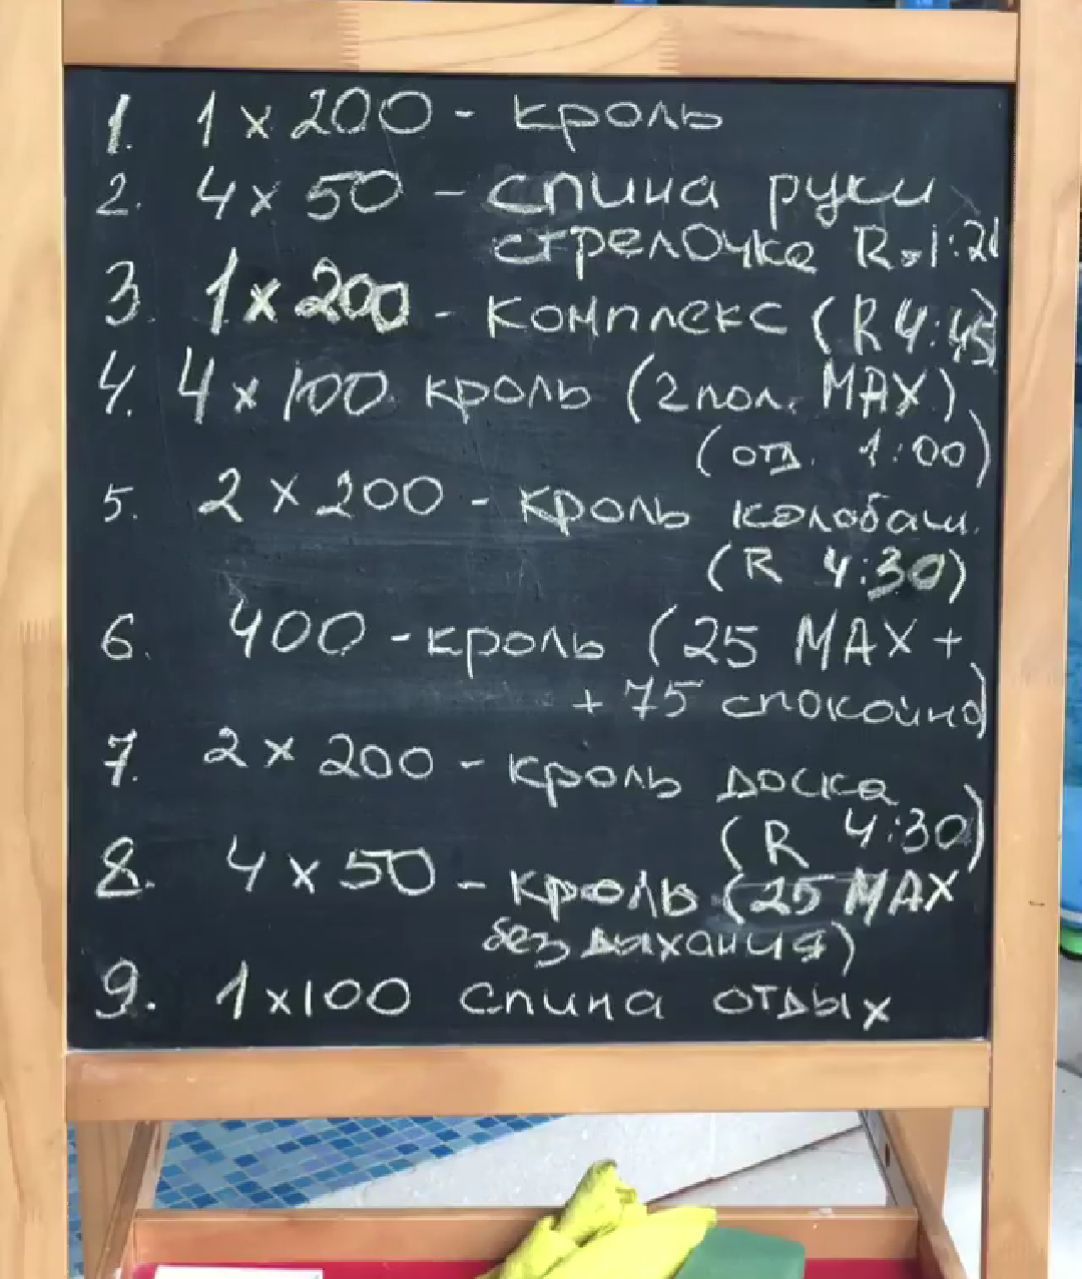 1. 1 x 200 - кроль
2. 4 x 50 - спина руки
стрелочка
3. 1 x 200 - комплекс (R 4:45)
4. 4 x 100 кроль (2 пол. MAX)
(отд. 1:00)
5. 2 x 200 - кроль колобаш.
(R 4:30)
6. 400 - кроль (25 MAX +
+ 75 спокойно)
7. 2 x 200 - кроль доска
(R 4:30)
8. 4 x 50 - кроль (25 MAX
без дыхания)
9. 1 x 100 спина отдых